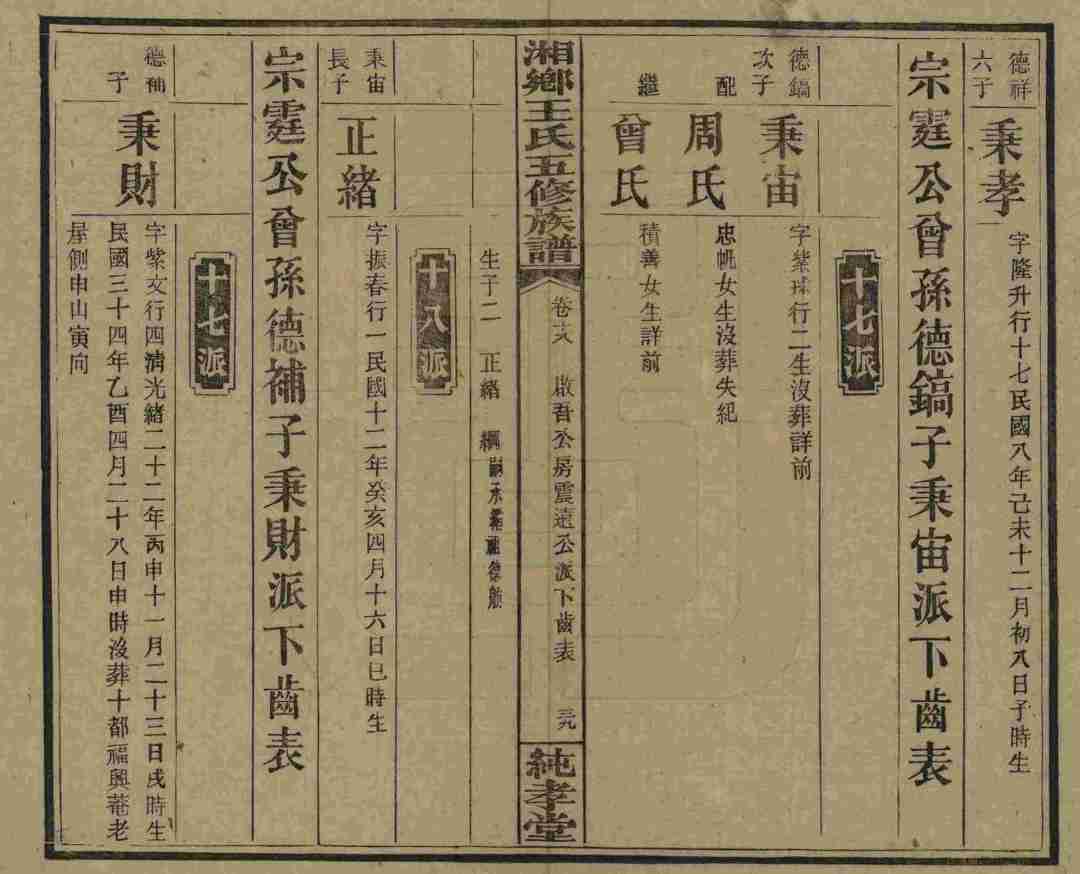 德祥
六子
秉孝
字隆升行十七民國八年己未十二月初八日子時生
宗霆公曾孫德鎬子秉宙派下齒表
十七派
德鎬
次子
秉宙
字紫球行二生沒葬詳前
配
周氏
忠帆女生沒葬失紀
繼
曾氏
積善女生詳前
湘鄉王氏五修族譜
卷十八
啟吾公房震遠公派下齒表
三九
純孝堂
生子二 正緒 綱嗣永
十八派
秉宙
長子
正緒
字振春行一民國十二年癸亥四月十六日巳時生
宗霆公曾孫德補子秉財派下齒表
十七派
德補
子
秉財
字紫文行四清光緒二十二年丙申十一月二十三日戌時生
民國三十四年乙酉四月二十八日申時沒葬十都福興菴老
屋側申山寅向